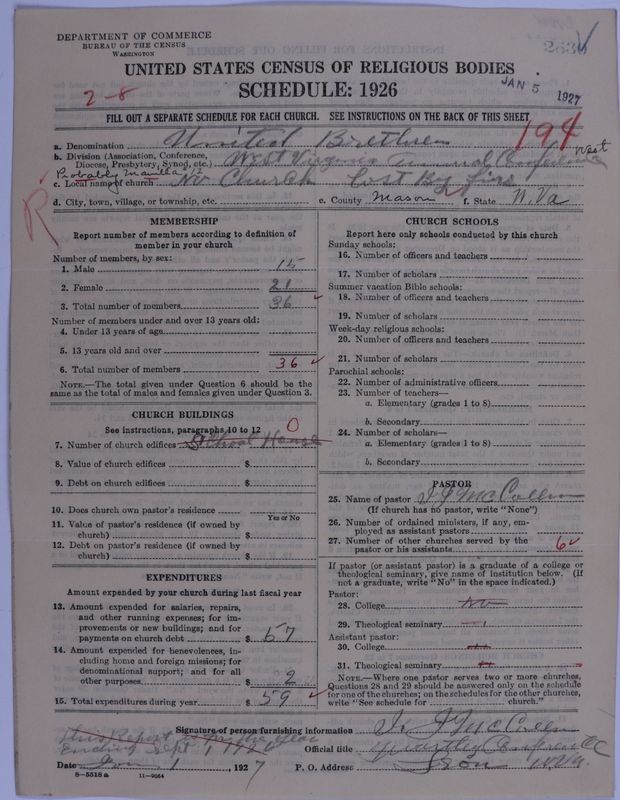 DEPARTMENT OF COMMERCE
BUREAU OF THE CENSUS
WASHINGTON
UNITED STATES CENSUS OF RELIGIOUS BODIES
SCHEDULE: 1926
2-8
JAN 5 1927
FILL OUT A SEPARATE SCHEDULE FOR EACH CHURCH. SEE INSTRUCTIONS ON THE BACK OF THIS SHEET
194
a. Denomination United Brethren
West
b. Division (Association, Conference, Diocese, Presbytery, Synod, etc.) West Virginia Annual Conference
Probably Manilla
c. Local name of church No Church Lost By fire
d. City, town, village, or township, etc. e. County Mason f. State W. Va
R
MEMBERSHIP
Report number of members according to definition of member in your church
Number of members, by sex:
1. Male 15
2. Female 21
3. Total number of members 36
Number of members under and over 13 years old:
4. Under 13 years of age
5. 13 years old and over
6. Total number of members 36
NOTE.—The total given under Question 6 should be same as the total of males and females given under Question 3.
CHURCH BUILDINGS
See instructions, paragraphs 10 to 12
0
7. Number of church edifices School House
8. Value of church edifices $
9. Debt on church edifices $
10. Does church own pastor's residence
Yes or No
11. Value of pastor's residence (if owned by church) $
12. Debt on pastor's residence (if owned by church) $
EXPENDITURES
Amount expended by your church during last fiscal year
13. Amount expended for salaries, repairs, and other running expenses; for improvements or new buildings; and for payments on church debt $ 57
14. Amount expended for benevolences, including home and foreign missions; for denominational support; and for all other purposes $ 2
15. Total expenditures during year $ 59
CHURCH SCHOOLS
Report here only schools conducted by this church
Sunday schools:
16. Number of officers and teachers
17. Number of scholars
Summer vacation Bible schools:
18. Number of officers and teachers
19. Number of scholars
Week-day religious schools:
20. Number of officers and teachers
21. Number of scholars
Parochial schools:
22. Number of administrative officers
23. Number of teachers—
a. Elementary (grades 1 to 8)
b. Secondary
24. Number of scholars—
a. Elementary (grades 1 to 8)
b. Secondary
PASTOR
25. Name of pastor
(If church has no pastor, write "None")
26. Number of ordained ministers, if any, employed as assistant pastors
27. Number of other churches served by the pastor or his assistants 6
If pastor (or assistant pastor) is a graduate of a college or theological seminary, give name of institution below. (If not a graduate, write "No" in the space indicated.)
Pastor:
28. College No
29. Theological seminary
Assistant pastor:
30. College
31. Theological seminary
NOTE.—Where one pastor serves two or more churches, Questions 28 and 29 should be answered only on the schedule for one of the churches; on the schedules for the other churches, write "See schedule for church."
Signature of person furnishing information
This Report is for the year
Ending Sept 1 1926
Official title Quarterly Conference
Date Jan 1, 1927
P. O. Address Leon W.Va.
8-5518a 11-9064